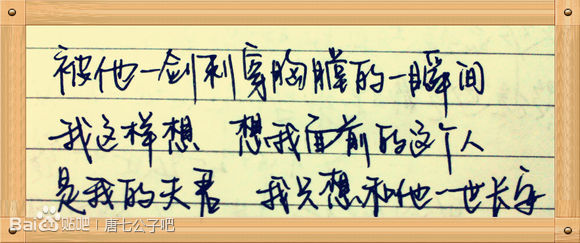 被他一剑刺穿胸膛的一瞬间
我这样想 想我面前的这个人
是我的夫君 我只想和他一世长安
Baidu贴吧 | 唐七公子吧